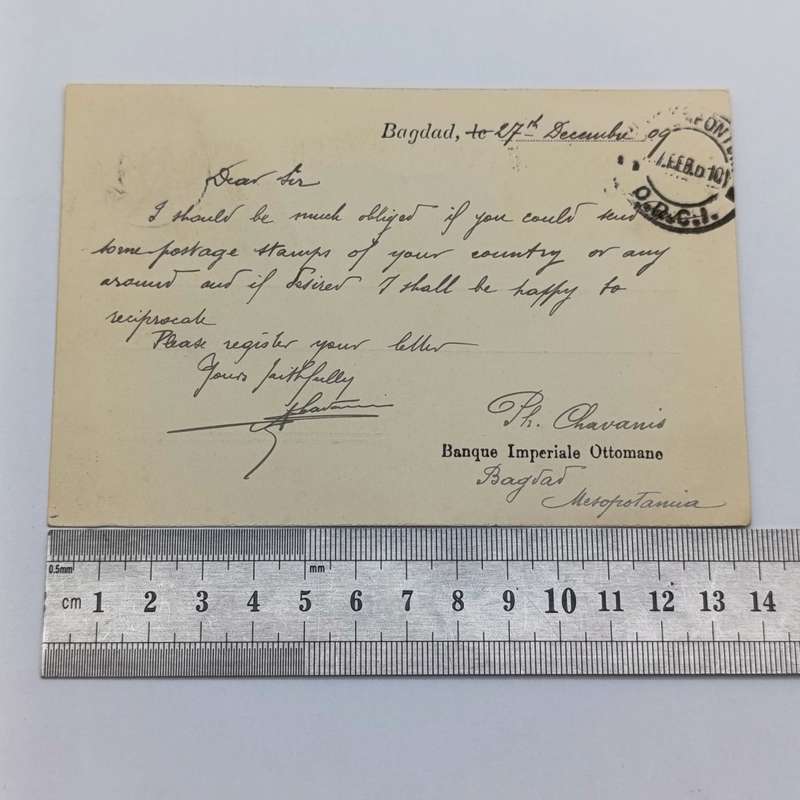 Bagdad, le 27th Decembre 09
Dear Sir
I should be much obliged if you could send
some postage stamps of your country or any
around and if desired I shall be happy to
reciprocate
Please register your letter
Yours faithfully
Ph. Chavanis
Banque Imperiale Ottomane
Bagdad
Mesopotamia
1.FEB.0 10
O.R.C.I.
0.5mm
mm
cm 1 2 3 4 5 6 7 8 9 10 11 12 13 14